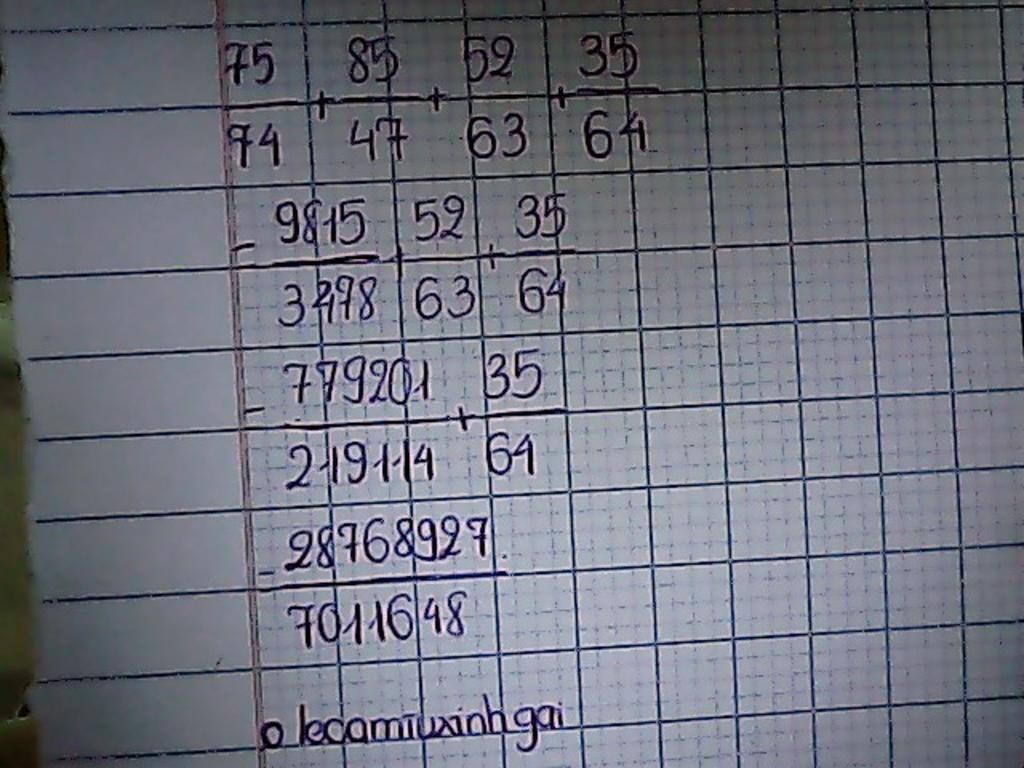 75/74 + 85/47 + 52/63 + 35/64
= 9815/3478 + 52/63 + 35/64
= 779201/219114 + 35/64
= 28768927/7011648